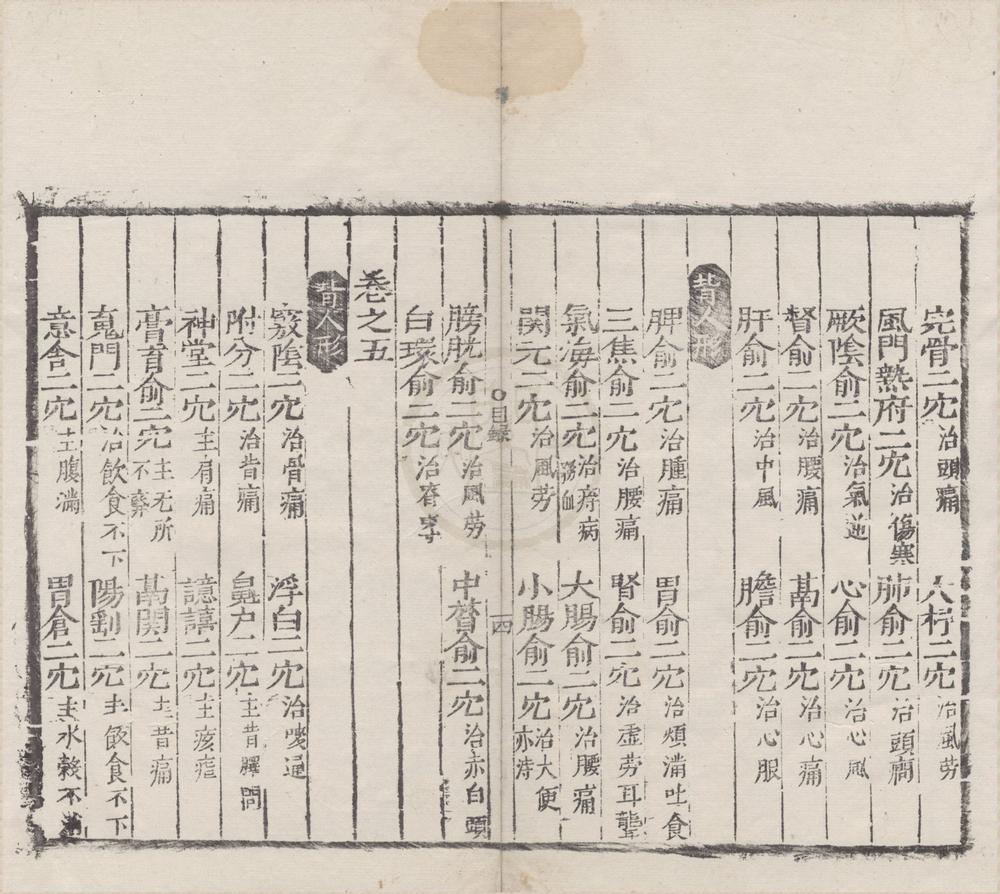 完骨二穴治頭痛 大杼二穴治風勞
風門熱府二穴治傷寒 肺俞二穴治頭痛
厥陰俞二穴治氣逆 心俞二穴治心風
督俞二穴治腰痛 膈俞二穴治心痛
肝俞二穴治中風 膽俞二穴治心脹
背人形
脾俞二穴治腫痛 胃俞二穴治煩滿吐食
三焦俞二穴治腰痛 腎俞二穴治虛勞耳聾
氣海俞二穴治痔病瀉血 大腸俞二穴治腰痛
関元二穴治風勞 小腸俞二穴治大便赤
目錄 四
膀胱俞二穴治風勞 中膂俞二穴治赤白
白環俞二穴治脊
卷之五
背人形
竅陰二穴治骨痛 浮白二穴治
附分二穴治背痛 鬼户二穴主背膊悶
神堂二穴主肩痛 譩譆二穴主痎瘧
膏肓俞二穴主无所不療 膈関二穴主背痛
䰟門二穴治飲食不下 陽剛二穴主飲食不下
意舍二穴主腹滿 胃倉二穴主水穀不